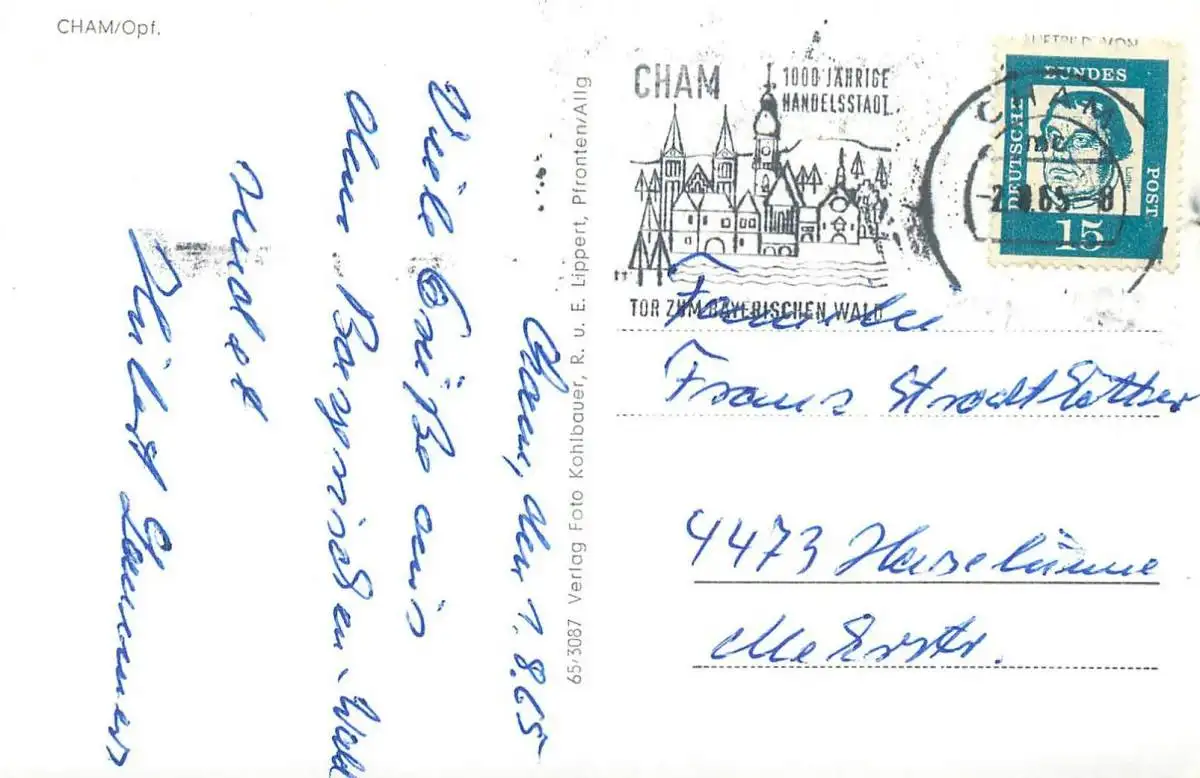 CHAM/Opf.
Cham, den 1.8.65
Viele Grüße aus
dem Bayrischen Wald
sendet
65/3087 Verlag Foto Kohlbauer, R. u. E. Lippert, Pfronten/Allg
CHAM
1000 JÄHRIGE
HANDELSSTADT
TOR ZUM BAYERISCHEN WALD
LUFTBILD VON
DEUTSCHE
BUNDES
POST
Luther
15
CHAM
-2.8.65-8
Familie
Franz
4473 Haselünne